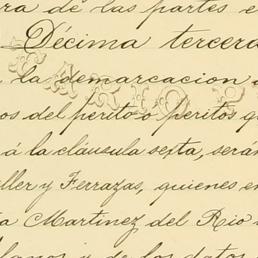 ra de las partes e
Décima tercera
la demarcacion
os del perito o peritos q
á la cláusula sexta, será
ller y Ferrazas, quienes e
Martinez del Rio
lanos y de los datos